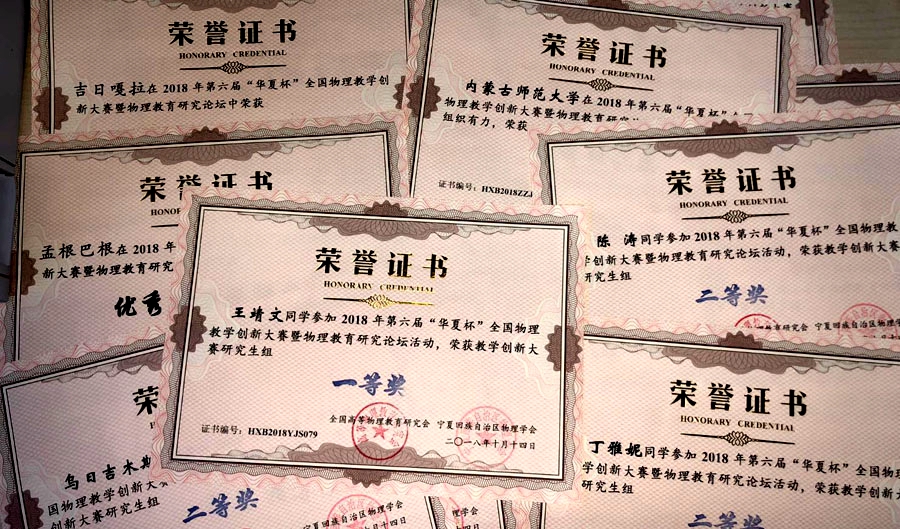 荣誉证书
HONORARY CREDENTIAL
吉日嘎拉在 2018 年第六届“华夏杯”全国物理教学创
新大赛暨物理教育研究论坛中荣获
荣誉证书
HONORARY CREDENTIAL
内蒙古师范大学在 2018 年第六届“华夏杯”
物理教学创新大赛暨物理教育研
组织有力，荣获
证书编号：HXB2018ZZJ
荣誉证书
孟根巴根在 2018 年
新大赛暨物理教育研究
优秀
荣誉证书
HONORARY CREDENTIAL
陈 涛同学参加 2018 年第六届“华夏杯”全国物理
创新大赛暨物理教育研究论坛活动，荣获教学创新大赛
研究生组
二等奖
宁夏回族自治区物理学
荣誉证书
HONORARY CREDENTIAL
王靖文同学参加 2018 年第六届“华夏杯”全国物理
教学创新大赛暨物理教育研究论坛活动，荣获教学创新大
赛研究生组
一等奖
全国高等物理教育研究会 宁夏回族自治区物理学会
证书编号：HXB2018YJS079
二〇一八年十月十四日
荣
乌日吉木斯
国物理教学创新大
创新大赛暨物理教育研究
二等奖
宁夏回族自治区物理学会
十月十四日
理学会
四日
荣誉证书
HONORARY CREDENTIAL
丁雅妮同学参加 2018 年第六届“华夏杯”全国物
学创新大赛暨物理教育研究论坛活动，荣获教学创新大
研究生组
二等奖